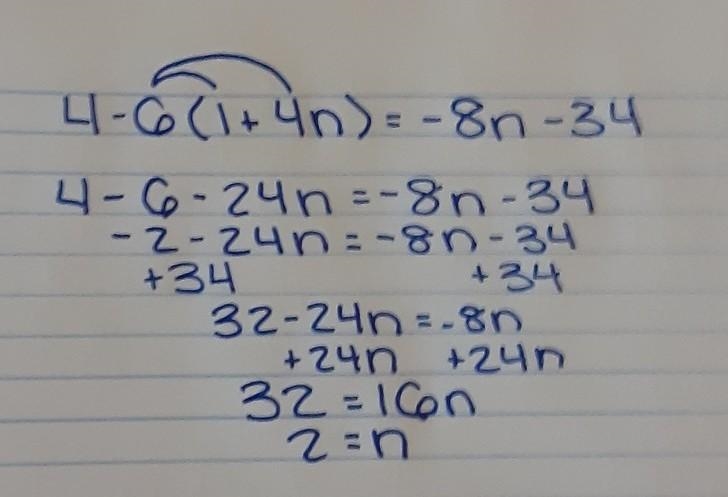 4-6(1+4n)=-8n-34
4-6-24n=-8n-34
-2-24n=-8n-34
+34 +34
32-24n=-8n
+24n +24n
32=16n
2=n